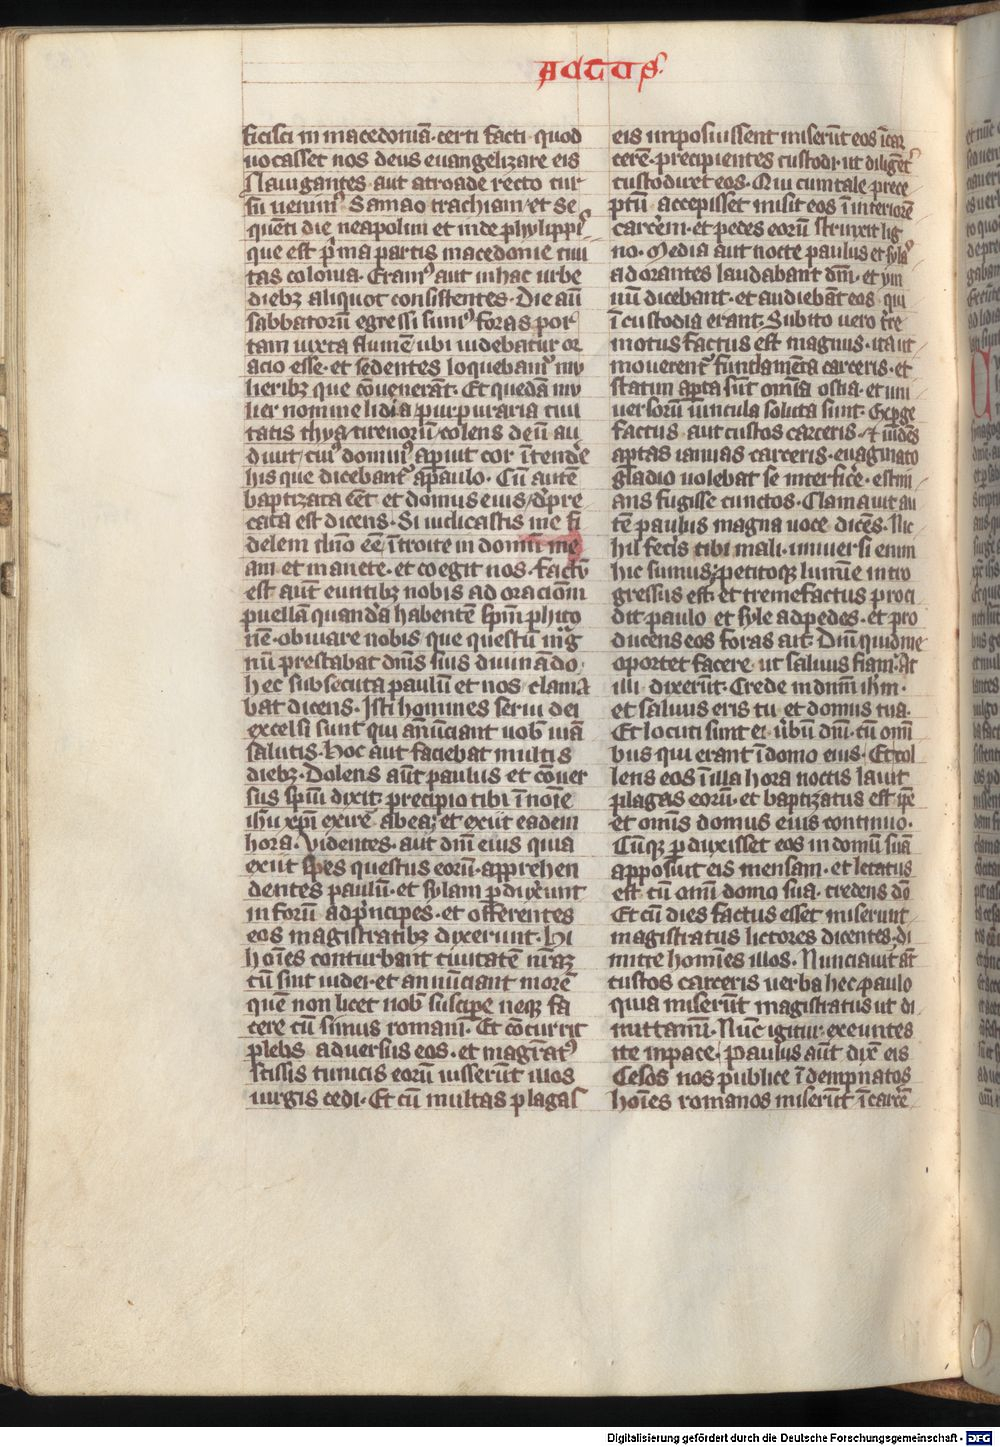 Actus
ficisci in macedoniā · certi facti · quod
uocasset nos deus euangelizare eis
Nauigantes aūt atroade recto cur
su uenim᷒ Samotrachiam / et se
quēti die neapolim et inde phylippis
que est p̄ma partis macedonie ciui
tas colonia · Eram᷒ aūt in hac urbe
diebꝫ aliquot consistentes · Die aūt
sabbatorū egressi sum᷒ foras por
tam iuxta flumē ubi uidebatur or
acio esse · et sedentes loquebam᷒ mu
lieribꝫ que cōuenerāt · Et quedā mu
lier nomine lidia / purpuraria ciui
tatis thyatirenorū / colens deū au
diuit / cui᷒ domin᷒ apuit cor ītende
his que dicebant᷒ a paulo · Cū autē
baptizata eēt et domus eius / dp̄re
cata est dicens · Si iudicastis me fi
delem dn̄o eē / ītroite in domū me
am et manete · et coegit nos · factū
est aūt euntibꝫ nobis ad oracionē
puellā quandā habentē sp̄m phito
nē · obuiare nobis que questū mg̅
nū prestabat dn̄is suis diuinādo ·
hec subsecuta paulū et nos / clama
bat dicens · Isti homines serui dei
excelsi sunt qui an̄unciant uob̄ uiā
salutis · Hoc aūt faciebat multis
diebꝫ · Dolens aūt paulus et cōuer
sus sp̄ui dixit · precipio tibi ī noīe
ih̄u xp̄i exire abea ; et exiit eadem
hora · Videntes aūt dn̄i eius quia
exiit spes questus eorū · apprehen
dentes paulū · et sylam pduxerunt
in forū ad p̄ncipes · et offerentes
eos magistratibꝫ dixerunt · Hi
hoīes conturbant ciuitatē nr̄aꝫ
cū sint iudei · et annūciant morē
quē non licet nob̄ suscipe neqꝫ fa
cere cū simus romani · Et cōcurrit
plebs aduersus eos · et magr̄at᷒
scissis tunicis eorū iusserūt illos
uirgis cedi · Et cū multas plagas
eis imposuissent miserūt eos īcar
cerē · precipientes custodi · ut diligent᷒
custodiret eos · Qui cum tale prece
ptū accepisset misit eos ī interiorē
carcerem · et pedes eorū strinxit lig
no · Media aūt nocte paulus et syla᷒
adorantes laudabant dm̄ · et ym
nū dicebant · et audiebāt eos qui
ī custodia erant · Subito uero t̄re
motus factus est magnus · ita ut
mouerent᷒ fundamēta carceris · et
statim apta sūt omīa ostia · et uni
uersorū uincula soluta sunt · Exp̄ge
factus aūt custos carceris · et uidēs
aptas ianuas carceris · euaginato
gladio uolebat se interfic̄e · estim
ans fugisse uinctos · Clamauit au
tē paulus magna uoce dicēs · Nic
hil feceris tibi mali · uniuersi enim
hic sumus · petitoqꝫ lumīe intro
gressus est · et tremefactus proci
dit paulo et syle ad pedes · et pro
ducens eos foras ait · Dnī quid me
oportet facere ut saluus fiam · At
illi dixerūt · Crede in dnm̄ ih̄m ·
et saluus eris tu et domus tua ·
Et locuti sunt ei u̅bū dn̄i · cū omī
bus qui erant ī domo eius · Et tol
lens eos ī illa hora noctis lauit
plagas eorū · et baptizatus est ip̄e
et omīs domus eius continuo ·
Cūqꝫ pduxisset eos in domū suā
apposuit eis mensam · et letatus
est cū omī domo sua · credens dō
Et cū dies factus esset miserunt
magistratus lictores dicentes · di
mitte homīes illos · Nunciauit āt
custos carceris uerba hec paulo
quia miserūt magistratus ut di
mittami · Nūc igitur exeuntes
ite in pace · Paulus aūt dix̄ eis
Cesos nos publice īdempnatos
hoīes romanos miserūt ī carcē
Digitalisierung gefördert durch die Deutsche Forschungsgemeinschaft - DFG